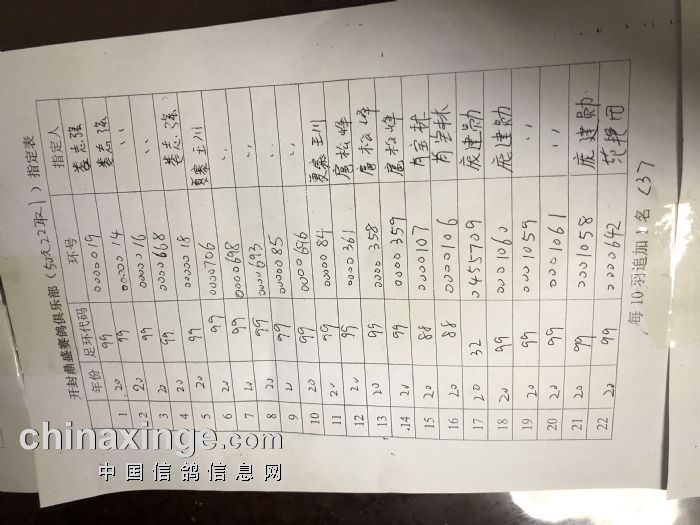 开封鼎盛赛鸽俱乐部(50元22取1)指定表
年份 足环代码 环号 指定人
1 20 99 0000019 娄志强
2 20 99 0000014 娄志强
3 20 99 0000016 〃
4 20 99 0000668 〃
5 20 99 0000018 娄志强
6 20 99 0000706 夏寨王川
7 20 99 0000698 〃
8 20 99 0000693 〃
9 20 99 0000085 〃
10 20 99 0000696 〃
11 20 99 0000084 夏寨王川
12 20 99 0000361 扈松峰
13 20 99 0000358 扈松峰
14 20 99 0000359 扈松峰
15 20 88 0000107 肖宝林
16 20 88 0000106 肖宝林
17 20 32 0455709 庞建勋
18 20 99 0001060 庞建勋
19 20 99 0001059 〃
20 20 99 0001061 〃
21 20 99 0001058 庞建勋
22 20 99 0000642
每10羽追加1名 (37
chinaxinge.com
中国信鸽信息网